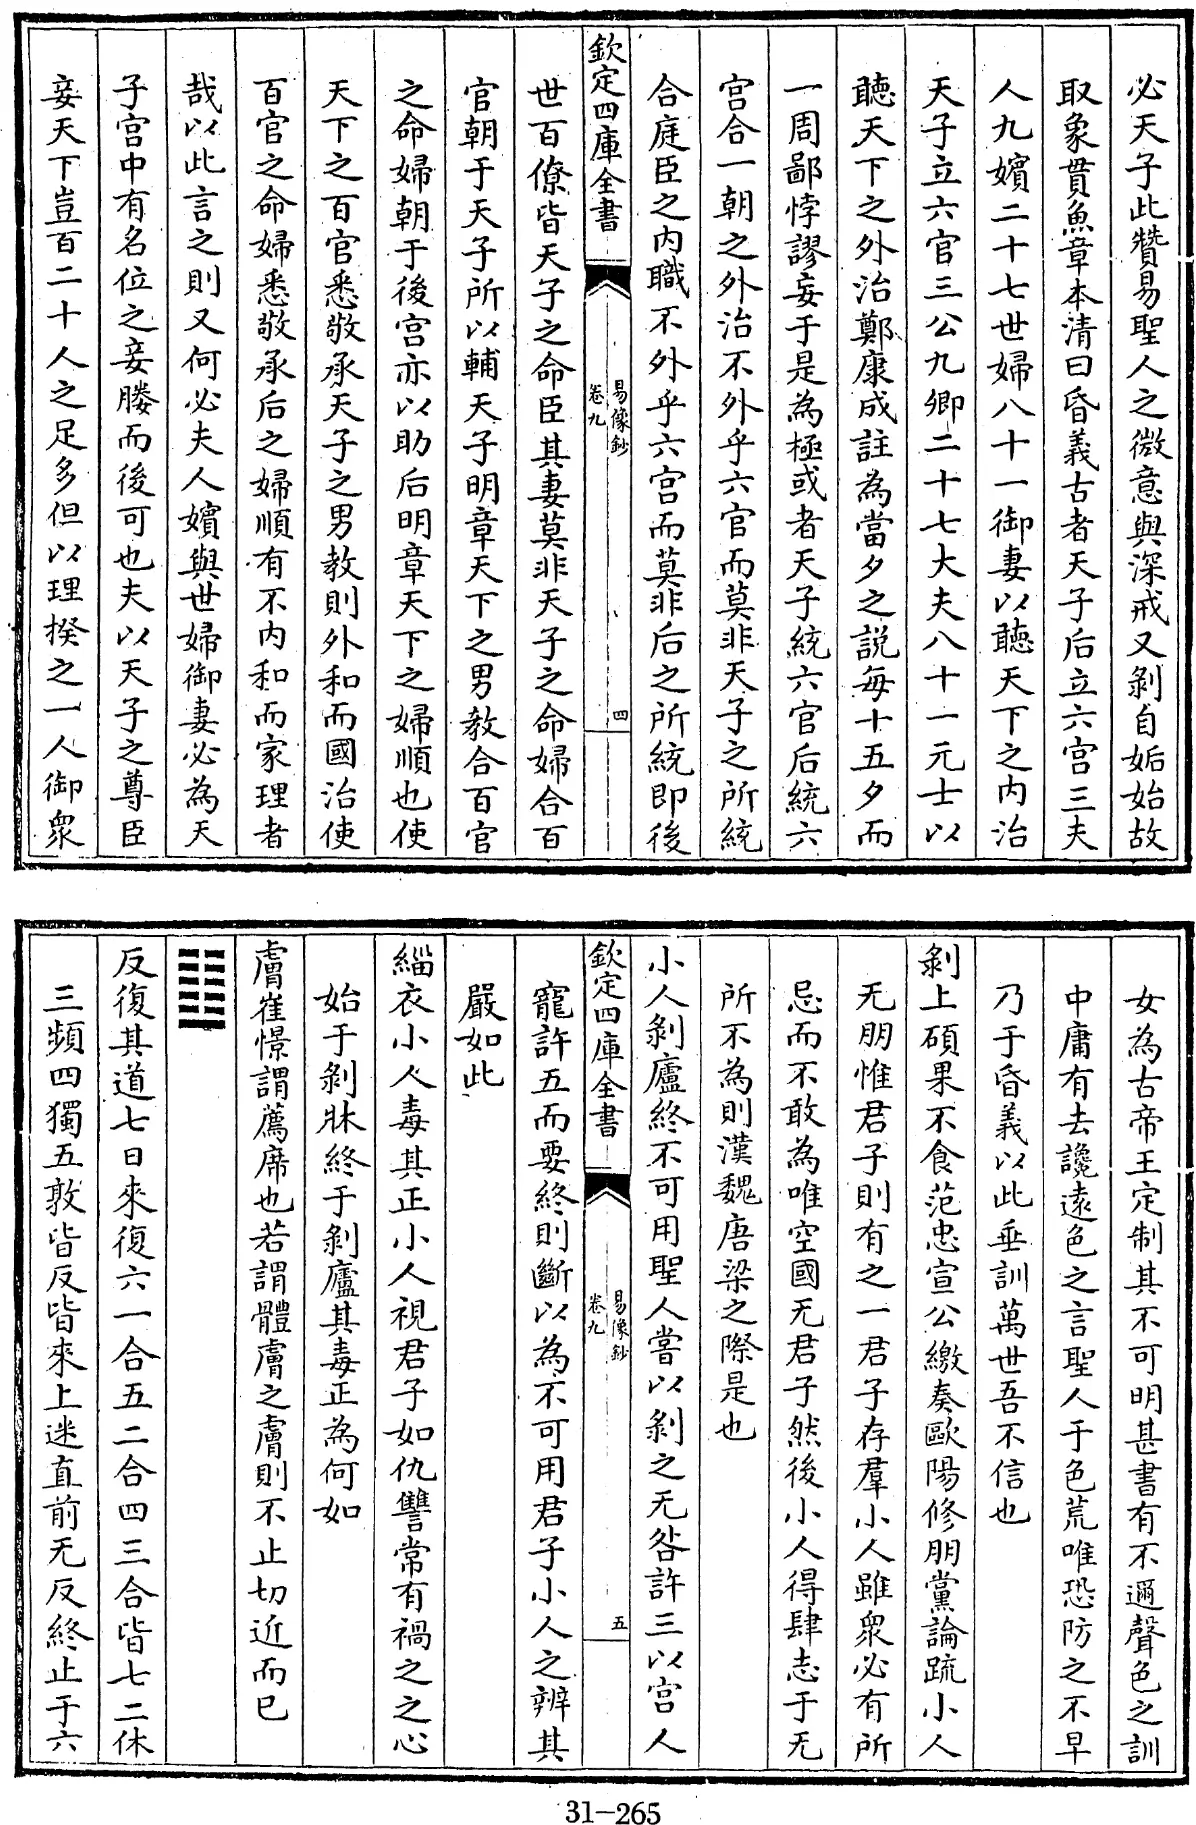 必天子此贊易聖人之微意與深戒又剝自姤始故
取象貫魚章本清曰昏義古者天子后立六宫三夫
人九嬪二十七世婦八十一御妻以聽天下之内治
天子立六官三公九卿二十七大夫八十一元士以
聽天下之外治鄭康成註為當夕之説每十五夕而
一周鄙悖謬妄于是為極或者天子統六官后統六
宫合一朝之外治不外乎六官而莫非天子之所統
合庭臣之内職不外乎六宫而莫非后之所統即後
欽定四庫全書
易像鈔
卷九
四
世百僚皆天子之命臣其妻莫非天子之命婦合百
官朝于天子所以輔天子明章天下之男教合百官
之命婦朝于後宫亦以助后明章天下之婦順也使
天下之百官悉敬承天子之男教則外和而國治使
百官之命婦悉敬承后之婦順有不内和而家理者
哉以此言之則又何必夫人嬪與世婦御妻必為天
子宫中有名位之妾媵而後可也夫以天子之尊臣
妾天下豈百二十人之足多但以理揆之一人御衆
女為古帝王定制其不可明甚書有不邇聲色之訓
中庸有去讒遠色之言聖人于色荒唯恐防之不早
乃于昏義以此垂訓萬世吾不信也
剝上碩果不食范忠宣公繳奏歐陽修朋黨論疏小人
无朋惟君子則有之一君子存羣小人雖衆必有所
忌而不敢為唯空國无君子然後小人得肆志于无
所不為則漢魏唐梁之際是也
小人剝廬終不可用聖人嘗以剝之无咎許三以宫人
欽定四庫全書
易像鈔
卷九
五
寵許五而要終則斷以為不可用君子小人之辨其
嚴如此
緇衣小人毒其正小人視君子如仇讐常有禍之之心
始于剝牀終于剝廬其毒正為何如
膚崔憬謂薦席也若謂體膚之膚則不止切近而已
䷗
反復其道七日來復六一合五二合四三合皆七二休
三頻四獨五敦皆反皆來上迷直前无反終止于六
31-265